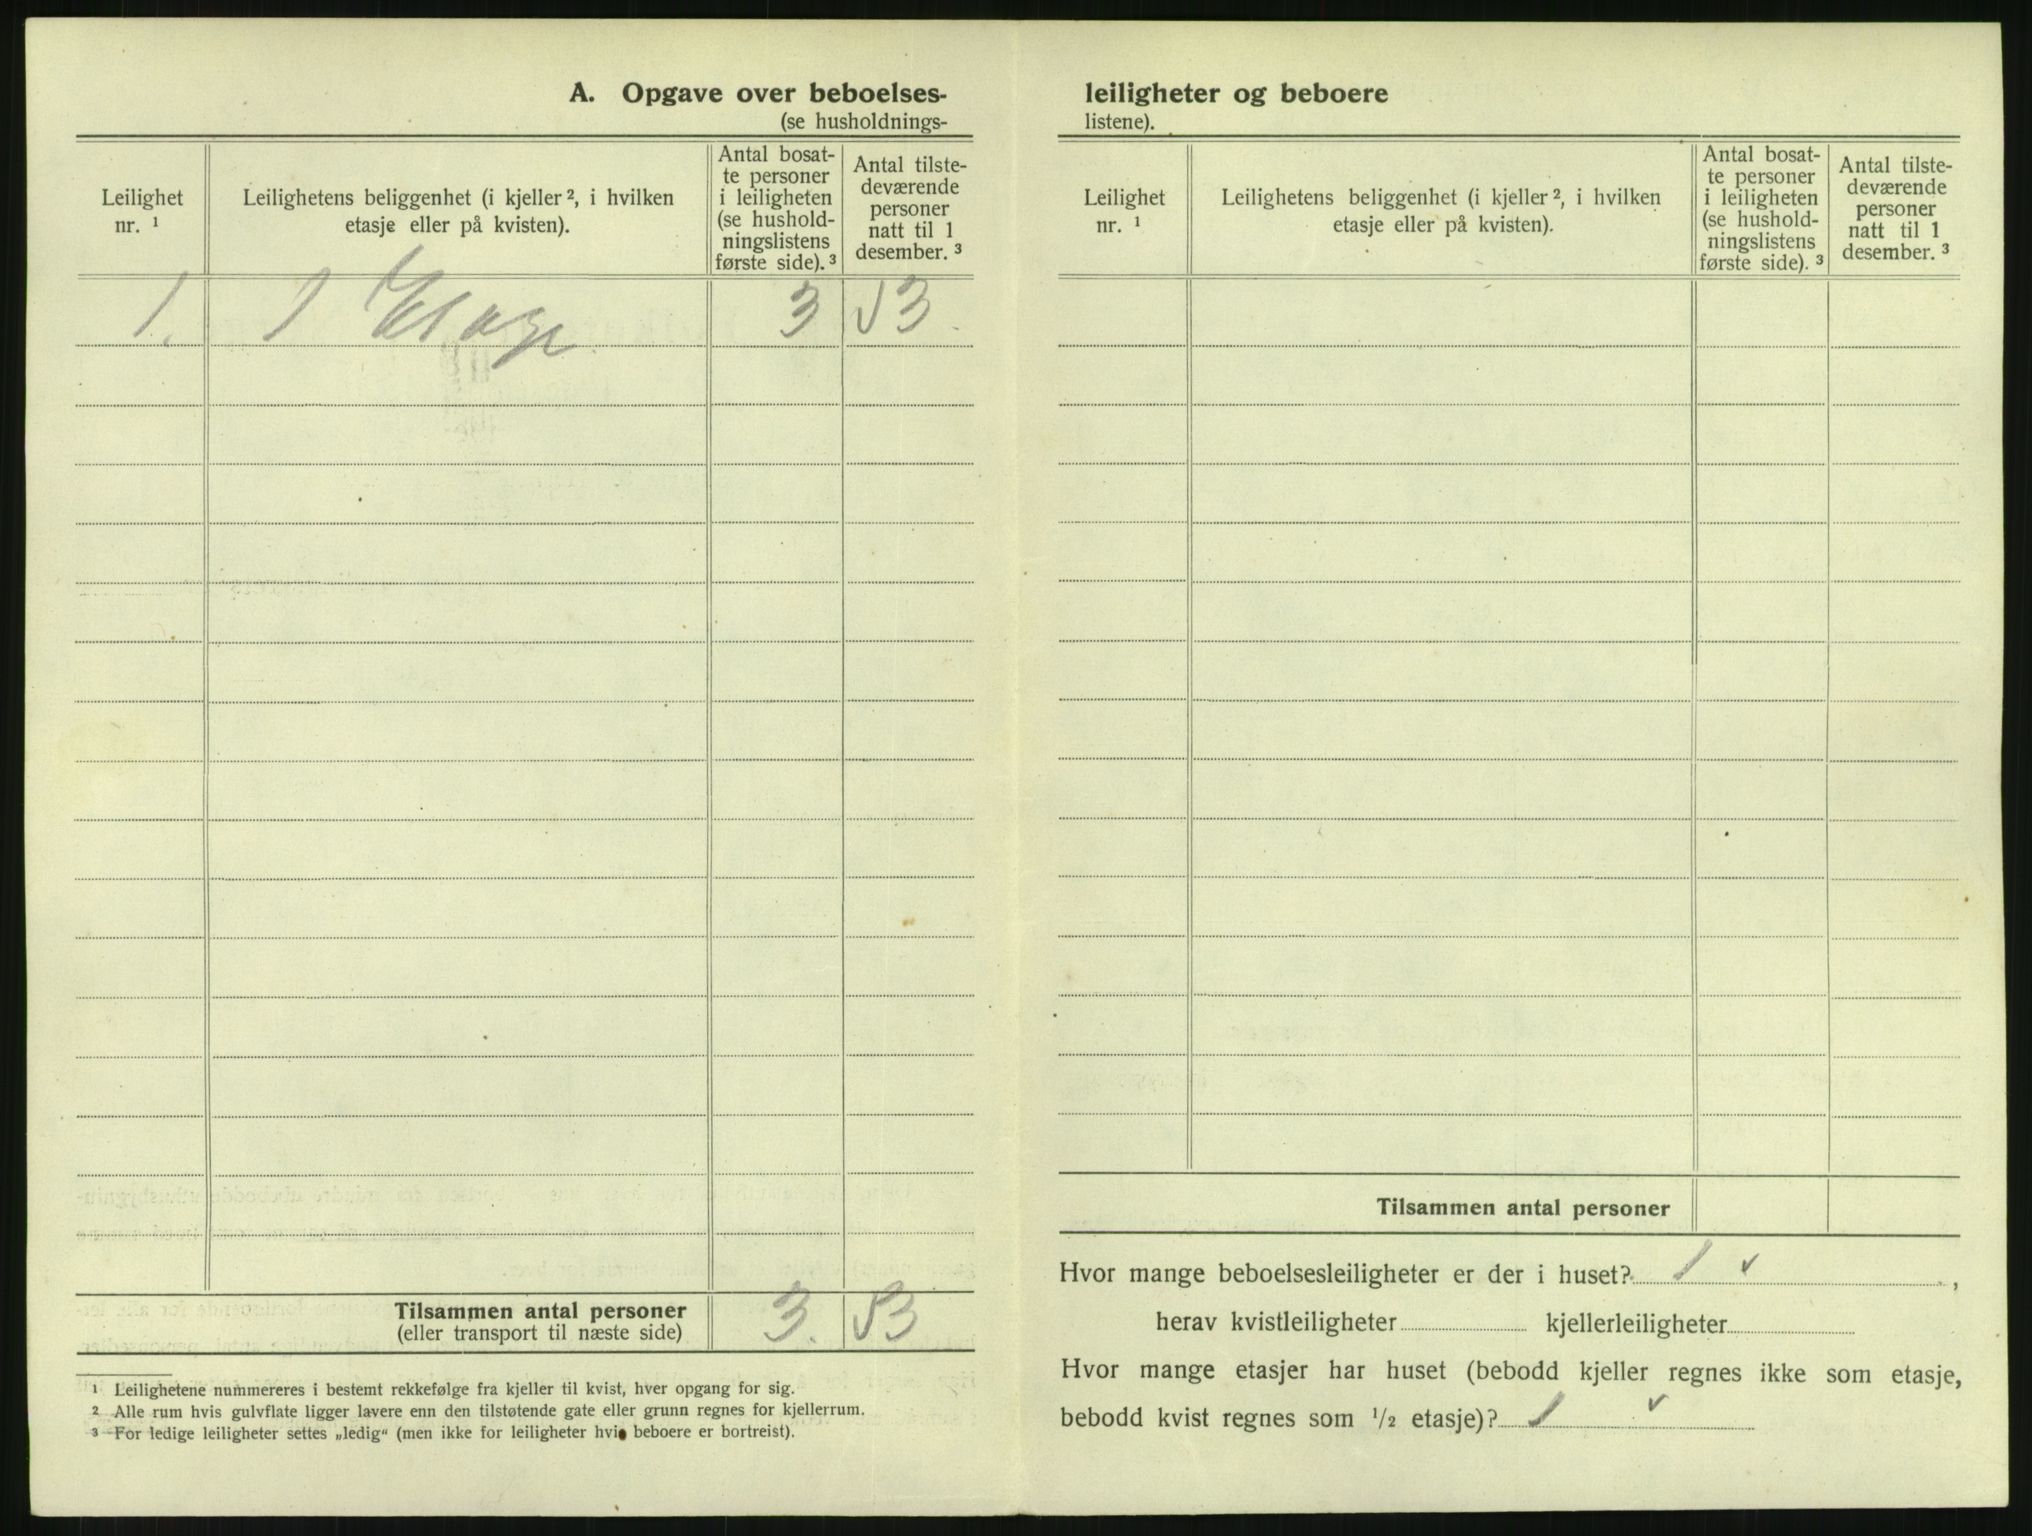 A. Opgave over beboelses-
(se husholdnings-
Leilighet nr. ¹
Leilighetens beliggenhet (i kjeller ², i hvilken etasje eller på kvisten).
Antal bosat-
te personer
i leiligheten
(se hushold-
ningslistens
første side). ³
Antal tilste-
deværende
personer
natt til 1
desember. ³
1. 1 Etage 3 √3
Tilsammen antal personer
(eller transport til næste side)
3. √3
¹ Leilighetene nummereres i bestemt rekkefølge fra kjeller til kvist, hver opgang for sig.
² Alle rum hvis gulvflate ligger lavere enn den tilstøtende gate eller grunn regnes for kjellerrum.
³ For ledige leiligheter settes „ledig“ (men ikke for leiligheter hvis beboere er bortreist).
leiligheter og beboere
listene).
Leilighet nr. ¹
Leilighetens beliggenhet (i kjeller ², i hvilken etasje eller på kvisten).
Antal bosat-
te personer
i leiligheten
(se hushold-
ningslistens
første side). ³
Antal tilste-
deværende
personer
natt til 1
desember. ³
Tilsammen antal personer
Hvor mange beboelsesleiligheter er der i huset? 1 ✓,
herav kvistleiligheter kjellerleiligheter
Hvor mange etasjer har huset (bebodd kjeller regnes ikke som etasje,
bebodd kvist regnes som ½ etasje)? 1 ✓